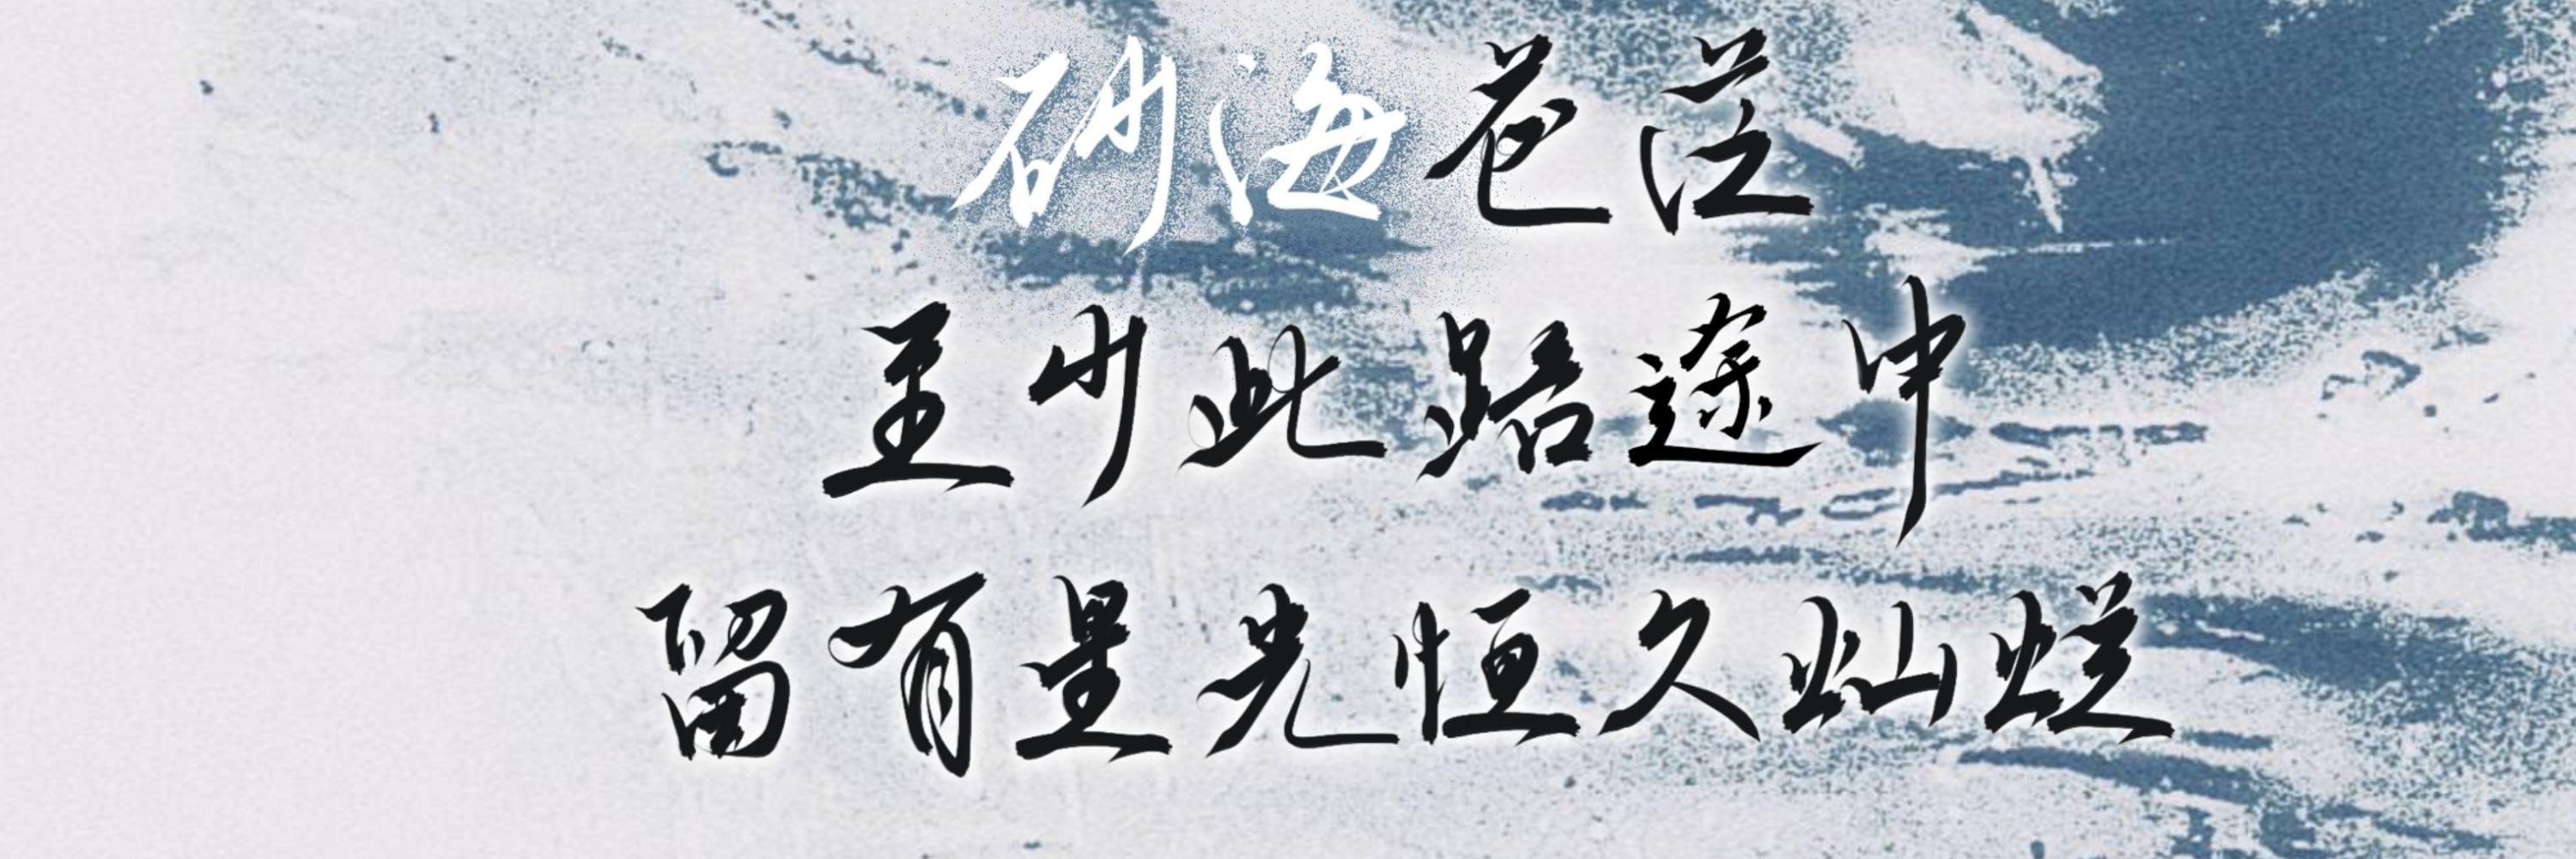 砂海苍茫
至少此路途中
留有星光恒久灿烂